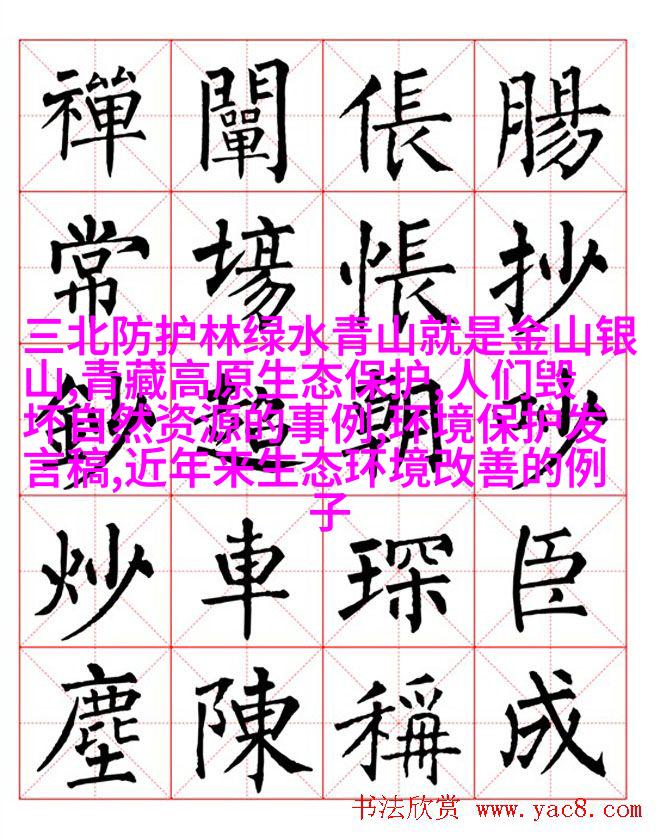 禪闡倀腸
常場悵抄
三北防护林绿水青山就是金山银
山,青藏高原生态保护,人们毁
坏自然资源的事例,环境保护发
言稿,近年来生态环境改善的例
子
鈔超朝吵
炒車琛臣
塵陳稱成
书法欣赏 www.yac8.com